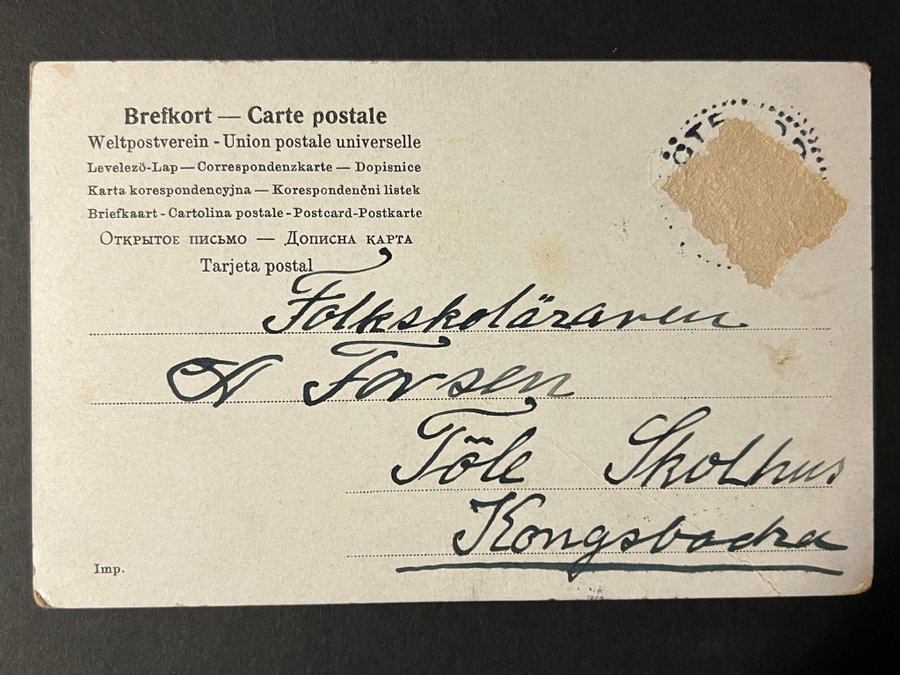 Brefkort — Carte postale
Weltpostverein - Union postale universelle
Levelezö-Lap — Correspondenzkarte — Dopisnice
Karta korespondencyjna — Korespondenčni listek
Briefkaart - Cartolina postale - Postcard-Postkarte
Открытое письмо — Дописна карта
Tarjeta postal
Folkskoläraren
A Forsen
Töle Skolhus
Kongsbacka
Imp.